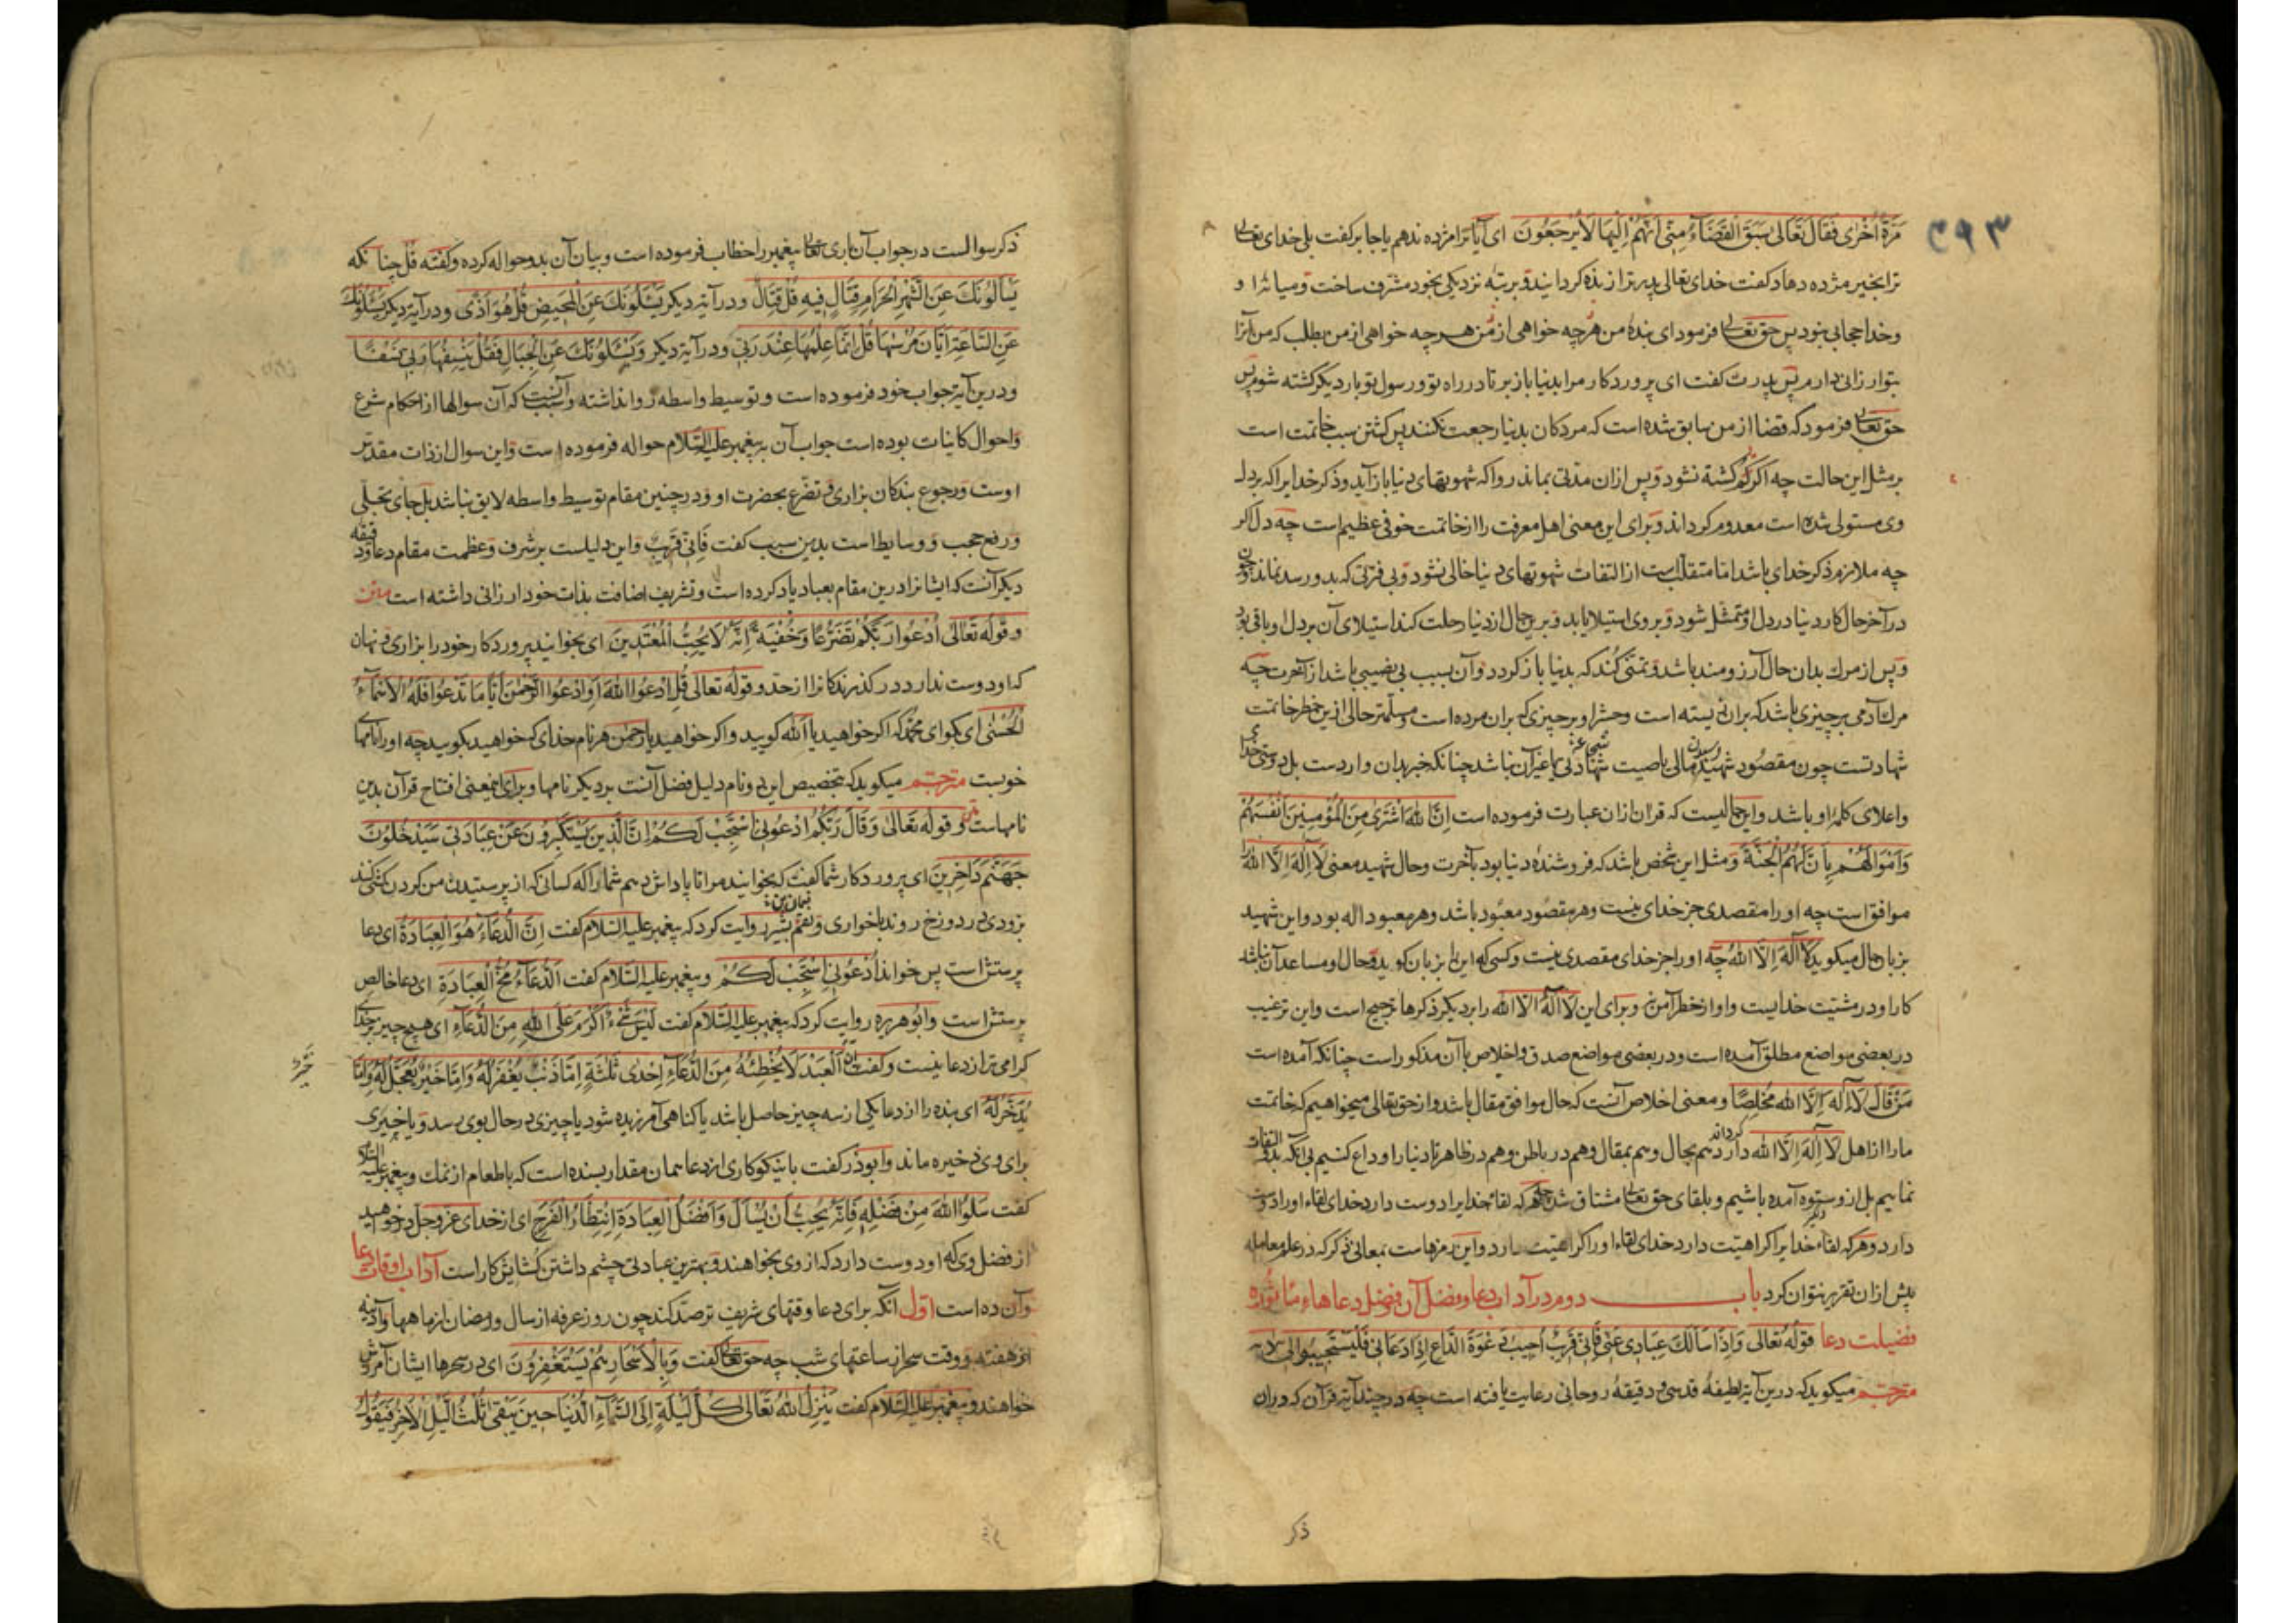 ۳۹۳
مَرَّةً اُخْرٰى فَقَالَ تَعَالٰى سَبَقَ الْقَضَآءُ مِنّى اَنَّهُمْ اِلَيْهَا لَا يَرْجِعُونَ اى آيا ترا مژده ندهم يا جابر كفت بلى خداى تعالى
ترا بخير مژده دهاد كفت خداى تعالى پدر ترا زنده كردانيد و برتبه نزديكى بخود مشرف ساخت و ميان او و
وخدا حجابى نبود پس حق تعالى فرمود اى بنده من هرچه خواهى از من هرچه خواهى از من بطلب كه من آنرا
بتو ارزانى دارم پس پدرت كفت اى پروردكار مرا بدنيا باز بر تا در راه تو و رسول تو بار ديكر كشته شوم پس
حق تعالى فرمود كه قضا از من سابق شده است كه مردكان بدنيا رجعت نكنند پس كشتن سبب خاتمت است
بر مثل اين حالت چه اكر كشته نشود و پس ازان مدتى بماند روا كه شهوتهاى دنيا باز آيد و ذكر خدايرا كه بر دل
وى مستولى شده است معدوم كرداند و براى اين معنى اهل معرفت را از خاتمت خوفى عظيم است چه دل اكر
چه ملازم ذكر خداى باشد اما متقلب است از التفات شهوتهاى دنيا خالى نشود و بى فترتى كه بدو رسد نماند و چون
در آخر حال كار دنيا در دل او متمثل شود و بروى استيلا يابد و برين حال از دنيا رحلت كند استيلاى آن بر دل او باقى بود
و پس از مرك بدان حال آرزومند باشد و تمنى كند كه بدنيا باز كردد و آن سبب بى نصيبى باشد از آخرت چه
مرك آدمى بر چيزى باشد كه بران زيسته است و حشر او بر چيزى كه بران مرده است و مسلمتر حالى ازين خطر خاتمت
شهادتست چون مقصود شهيد رسيدن مالى يا صيت شجاعت يا غير آن نباشد چنانكه خبر بدان واردست بل دوستى خدا
واعلاى كلمه او باشد و اين حاليست كه قران ازان عبارت فرموده است اِنَّ اللهَ اشْتَرٰى مِنَ الْمُؤْمِنِينَ اَنْفُسَهُمْ
وَاَمْوَالَهُمْ بِاَنَّ لَهُمُ الْجَنَّةَ و مثل اين شخص باشد كه فروشنده دنيا بود بآخرت و حال شهيد معنى لَا اِلٰهَ اِلَّا اللهُ را
موافق است چه او را مقصدى جز خداى نيست و هر مقصود معبود باشد و هر معبود اله بود و اين شهيد
بزبان حال ميكويد لَا اِلٰهَ اِلَّا اللهُ چه او را جز خداى مقصدى نيست و كسى كه اين بزبان كويد و حال او مساعد آن نباشد
كار او در مشيت خدايست و او از خطر آمن نى و براى اين لَا اِلٰهَ اِلَّا الله را بر ديكر ذكرها ترجيح است و اين ترغيب
در بعضى مواضع مطلق آمده است و در بعضى مواضع صدق و اخلاص با آن مذكور است چنانكه آمده است
مَنْ قَالَ لَا اِلٰهَ اِلَّا اللهُ مُخْلِصًا و معنى اخلاص آنست كه حال موافق مقال باشد و از حق تعالى ميخواهيم كه خاتمت
ما را از اهل لَا اِلٰهَ اِلَّا الله كرداند هم بحال و هم بمقال و هم در باطن و هم در ظاهر تا دنيا را وداع كنيم بى آنكه بدو التفات
نماييم بل از و ستوه آمده باشيم و بلقاى حق تعالى مشتاق شده چه هر كه لقاء خدايرا دوست دارد خداى لقاء او را دوست
دارد و هر كه لقاء خدايرا كراهيت دارد خداى لقاء او را كراهيت دارد و اين رمزهاست بمعانى ذكر كه در علم معامله
بيش ازان تقرير نتوان كرد باب دوم در آداب دعا و فضل آن و فضل دعاهاء مأثوره
فضيلت دعا قوله تعالى وَاِذَا سَاَلَكَ عِبَادِى عَنّى فَاِنّى قَرِيبٌ اُجِيبُ دَعْوَةَ الدَّاعِ اِذَا دَعَانِ فَلْيَسْتَجِيبُوا لِى
مترجم ميكويد كه درين آيه لطيفهٔ قدسى و دقيقهٔ روحانى رعايت يافته است چه در چند آيه قرآن كه دران
ذكر
ذكر سوالست در جواب آن بارى تعالى پيغمبر را خطاب فرموده است و بيان آن بدو حواله كرده و كفته قل چنانكه
يَسْأَلُونَكَ عَنِ الشَّهْرِ الْحَرَامِ قِتَالٍ فِيهِ قُلْ قِتَالٌ و در آيه ديكر يَسْئَلُونَكَ عَنِ الْمَحِيضِ قُلْ هُوَ اَذًى و در آيه ديكر يَسْئَلُونَكَ
عَنِ السَّاعَةِ اَيَّانَ مُرْسٰيهَا قُلْ اِنَّمَا عِلْمُهَا عِنْدَ رَبّى و در آيه ديكر وَيَسْئَلُونَكَ عَنِ الْجِبَالِ فَقُلْ يَنْسِفُهَا رَبّى نَسْفًا
و درين آيه جواب خود فرموده است و توسيط واسطه روا نداشته و سبب آنست كه آن سوالها از احكام شرع
و احوال كاينات بوده است جواب آن به پيغمبر عليه السلام حواله فرموده است و اين سوال از ذات مقدس
اوست و رجوع بندكان بزارى و تضرع بحضرت او و در چنين مقام توسيط واسطه لايق نباشد بل جاى تجلى
و رفع حجب و وسايط است بدين سبب كفت فَاِنّى قَرِيبٌ و اين دليلست بر شرف و عظمت مقام دعا و دقيقه
ديكر آنست كه ايشانرا درين مقام بعباد ياد كرده است و تشريف اضافت بذات خود ارزانى داشته است متن
و قوله تعالى اُدْعُوا رَبَّكُمْ تَضَرُّعًا وَخُفْيَةً اِنَّهُ لَا يُحِبُّ الْمُعْتَدِينَ اى بخوانيد پروردكار خود را بزارى و نهان
كه او دوست ندارد در كذرندكانرا از حد و قوله تعالى قُلِ ادْعُوا اللهَ اَوِ ادْعُوا الرَّحْمٰنَ اَيًّا مَا تَدْعُوا فَلَهُ الْاَسْمَآءُ
الْحُسْنٰى اى بكو اى محمد كه اكر خواهيد يا الله كوييد و اكر خواهيد يا رحمن هر نام خداى كه خواهيد بكوييد چه او را نامهاى
خوبست مترجم ميكويد كه تخصيص اين دو نام دليل فضل آنست بر ديكر نامها و براى اينمعنى افتتاح قرآن بدين
نامهاست متن و قوله تعالى وَقَالَ رَبُّكُمُ ادْعُونِى اَسْتَجِبْ لَكُمْ اِنَّ الَّذِينَ يَسْتَكْبِرُونَ عَنْ عِبَادَتِى سَيَدْخُلُونَ
جَهَنَّمَ دَاخِرِينَ اى پروردكار شما كفت كه بخوانيد مرا تا پاداش دهم شما را كه كسانى كه از پرستيدن من كردن كشى كنند
بزودى در دوزخ روند با خوارى و نعمان بن بشير روايت كرد كه پيغمبر عليه السلام كفت اِنَّ الدُّعَآءَ هُوَ الْعِبَادَةُ اى دعا
پرستش است پس خواند اُدْعُونِى اَسْتَجِبْ لَكُمْ و پيغمبر عليه السلام كفت اَلدُّعَآءُ مُخُّ الْعِبَادَةِ اى دعا خالص
پرستش است و ابو هريره روايت كرد كه پيغمبر عليه السلام كفت لَيْسَ شَىْءٌ اَكْرَمَ عَلَى اللهِ مِنَ الدُّعَآءِ اى هيچ چيز بر خداى
كرامى تر از دعا نيست و كفت اِنَّ الْعَبْدَ لَا يُخْطِئُهُ مِنَ الدُّعَآءِ اِحْدٰى ثَلٰثَةٍ اِمَّا ذَنْبٌ يُغْفَرُ لَهُ وَاِمَّا خَيْرٌ يُعَجَّلُ لَهُ وَاِمَّا
يُدَّخَرُ لَهُ اى بنده را از دعا يكى از سه چيز حاصل باشد يا كناهى آمرزيده شود يا چيزى در حال بوى رسد و يا خيرى
براى وى ذخيره ماند و ابوذر كفت با نيكوكارى از دعا همان مقدار بسنده است كه با طعام از نمك و پيغمبر عليه السلام
كفت سَلُوا اللهَ مِنْ فَضْلِهِ فَاِنَّهُ يُحِبُّ اَنْ يُسْأَلَ وَاَفْضَلُ الْعِبَادَةِ اِنْتِظَارُ الْفَرَجِ اى از خداى عز و جل در خواهيد
از فضل وى كه او دوست دارد كه از وى بخواهند و بهترين عبادتى چشم داشتن كشايش كار است آداب اوقات دعا
و آن ده است اول آنكه براى دعا وقتهاى شريف ترصد كند چون روز عرفه از سال و رمضان از ماهها و آدينه
از هفته و وقت سحر از ساعتهاى شب چه حق تعالى كفت وَبِالْاَسْحَارِ هُمْ يَسْتَغْفِرُونَ اى در سحرها ايشان آمرزش
خواهند و پيغمبر عليه السلام كفت يَنْزِلُ اللهُ تَعَالٰى كُلَّ لَيْلَةٍ اِلَى السَّمَآءِ الدُّنْيَا حِينَ يَبْقٰى ثُلُثُ الَّيْلِ الْاٰخِرُ فَيَقُولُ